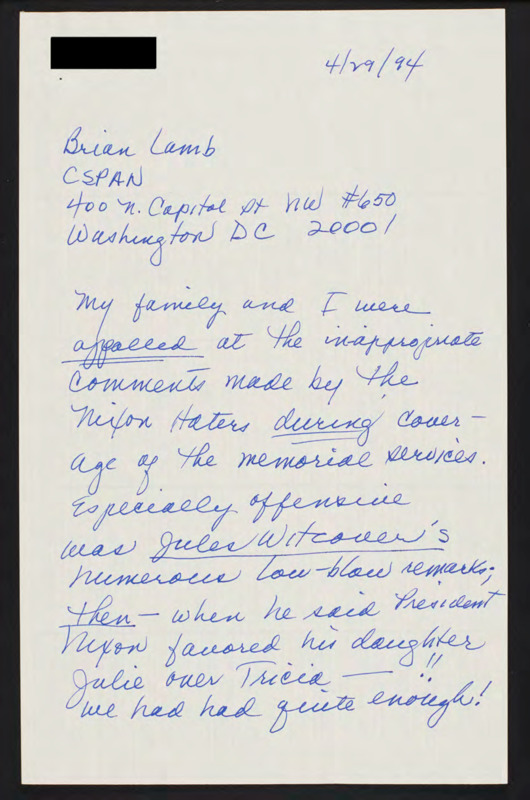 4/29/94
Brian Lamb
CSPAN
400 N. Capitol St NW #650
Washington DC 20001
My family and I were
appalled at the inappropriate
comments made by the
Nixon Haters during cover-
age of the memorial services.
Especially offensive
was Jules Witcover's
numerous low-blow remarks;
then — when he said President
Nixon favored his daughter
Julie over Tricia — !!
We had had quite enough!